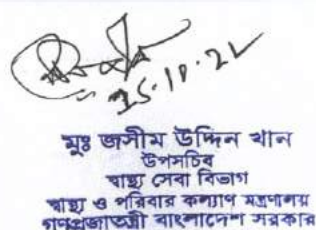 25.10.22
মুঃ জসীম উদ্দিন খান
উপসচিব
স্বাস্থ্য সেবা বিভাগ
স্বাস্থ্য ও পরিবার কল্যাণ মন্ত্রণালয়
গণপ্রজাতন্ত্রী বাংলাদেশ সরকার